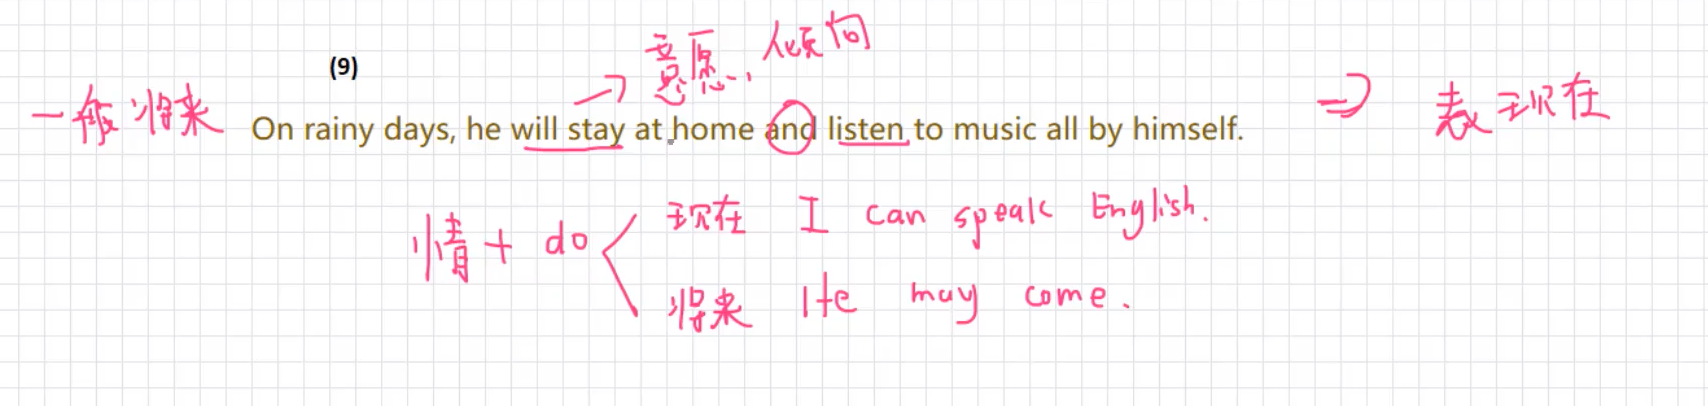 意愿、倾向
(9)
一般将来 On rainy days, he will stay at home and listen to music all by himself. ⇒ 表现在
现在 I can speak English.
情+ do
将来 He may come.